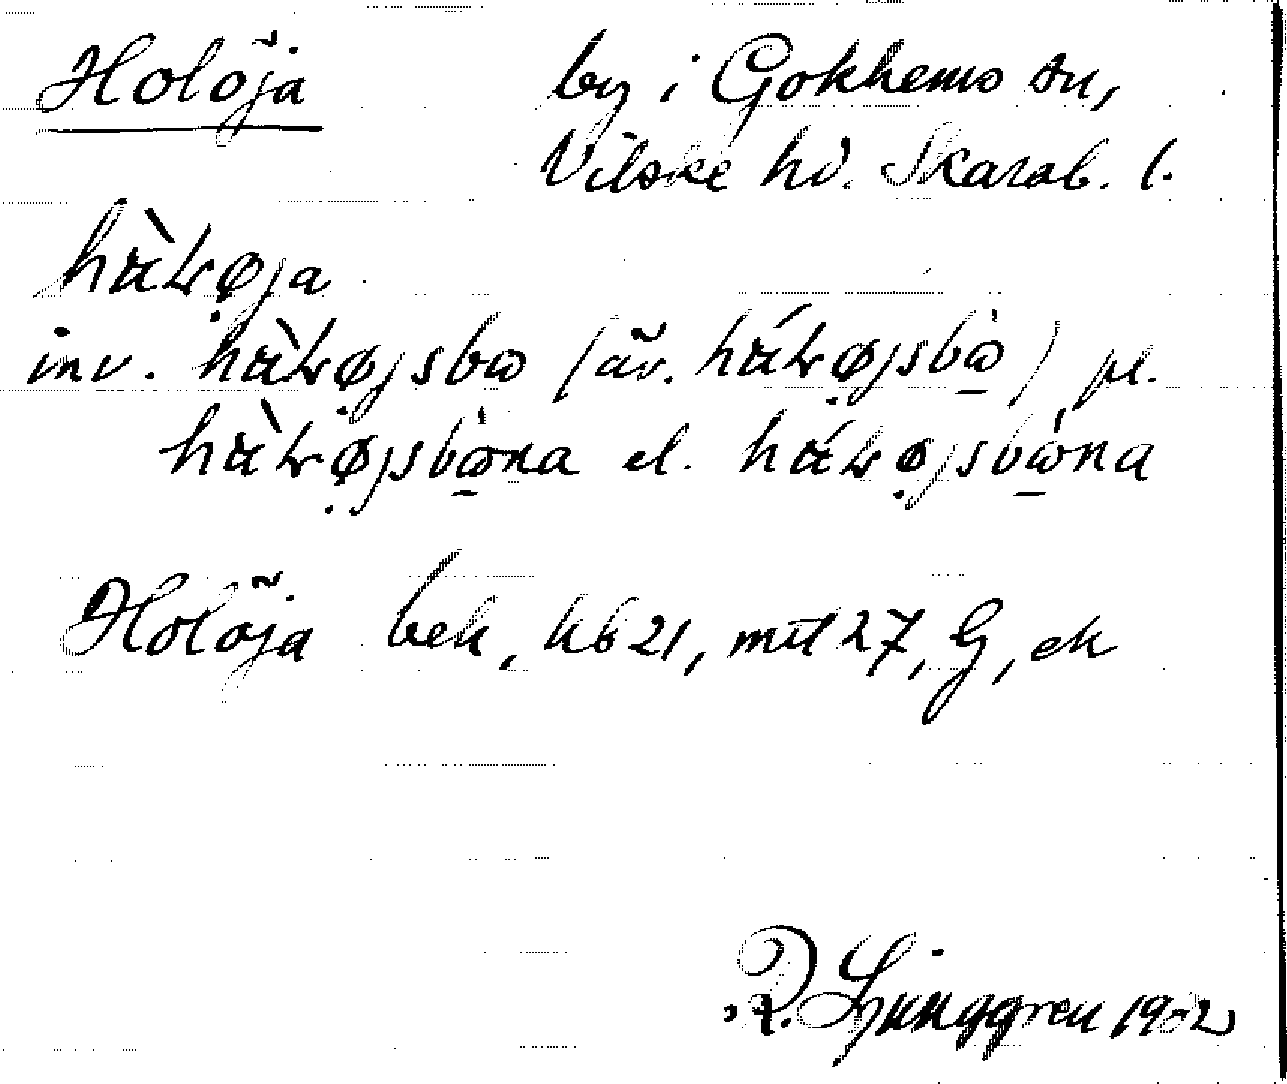 Holöja by i Gökhems sn,
Vilske hd. Skarab. l.
hàløja
inv. hàløjsbω (äv. háløjsbὼ) pl.
hàløjsbὼna el. háløjsbὼna
Holöja bek, kb 21, mtl 27, G, ek
R. Ljunggren 1902